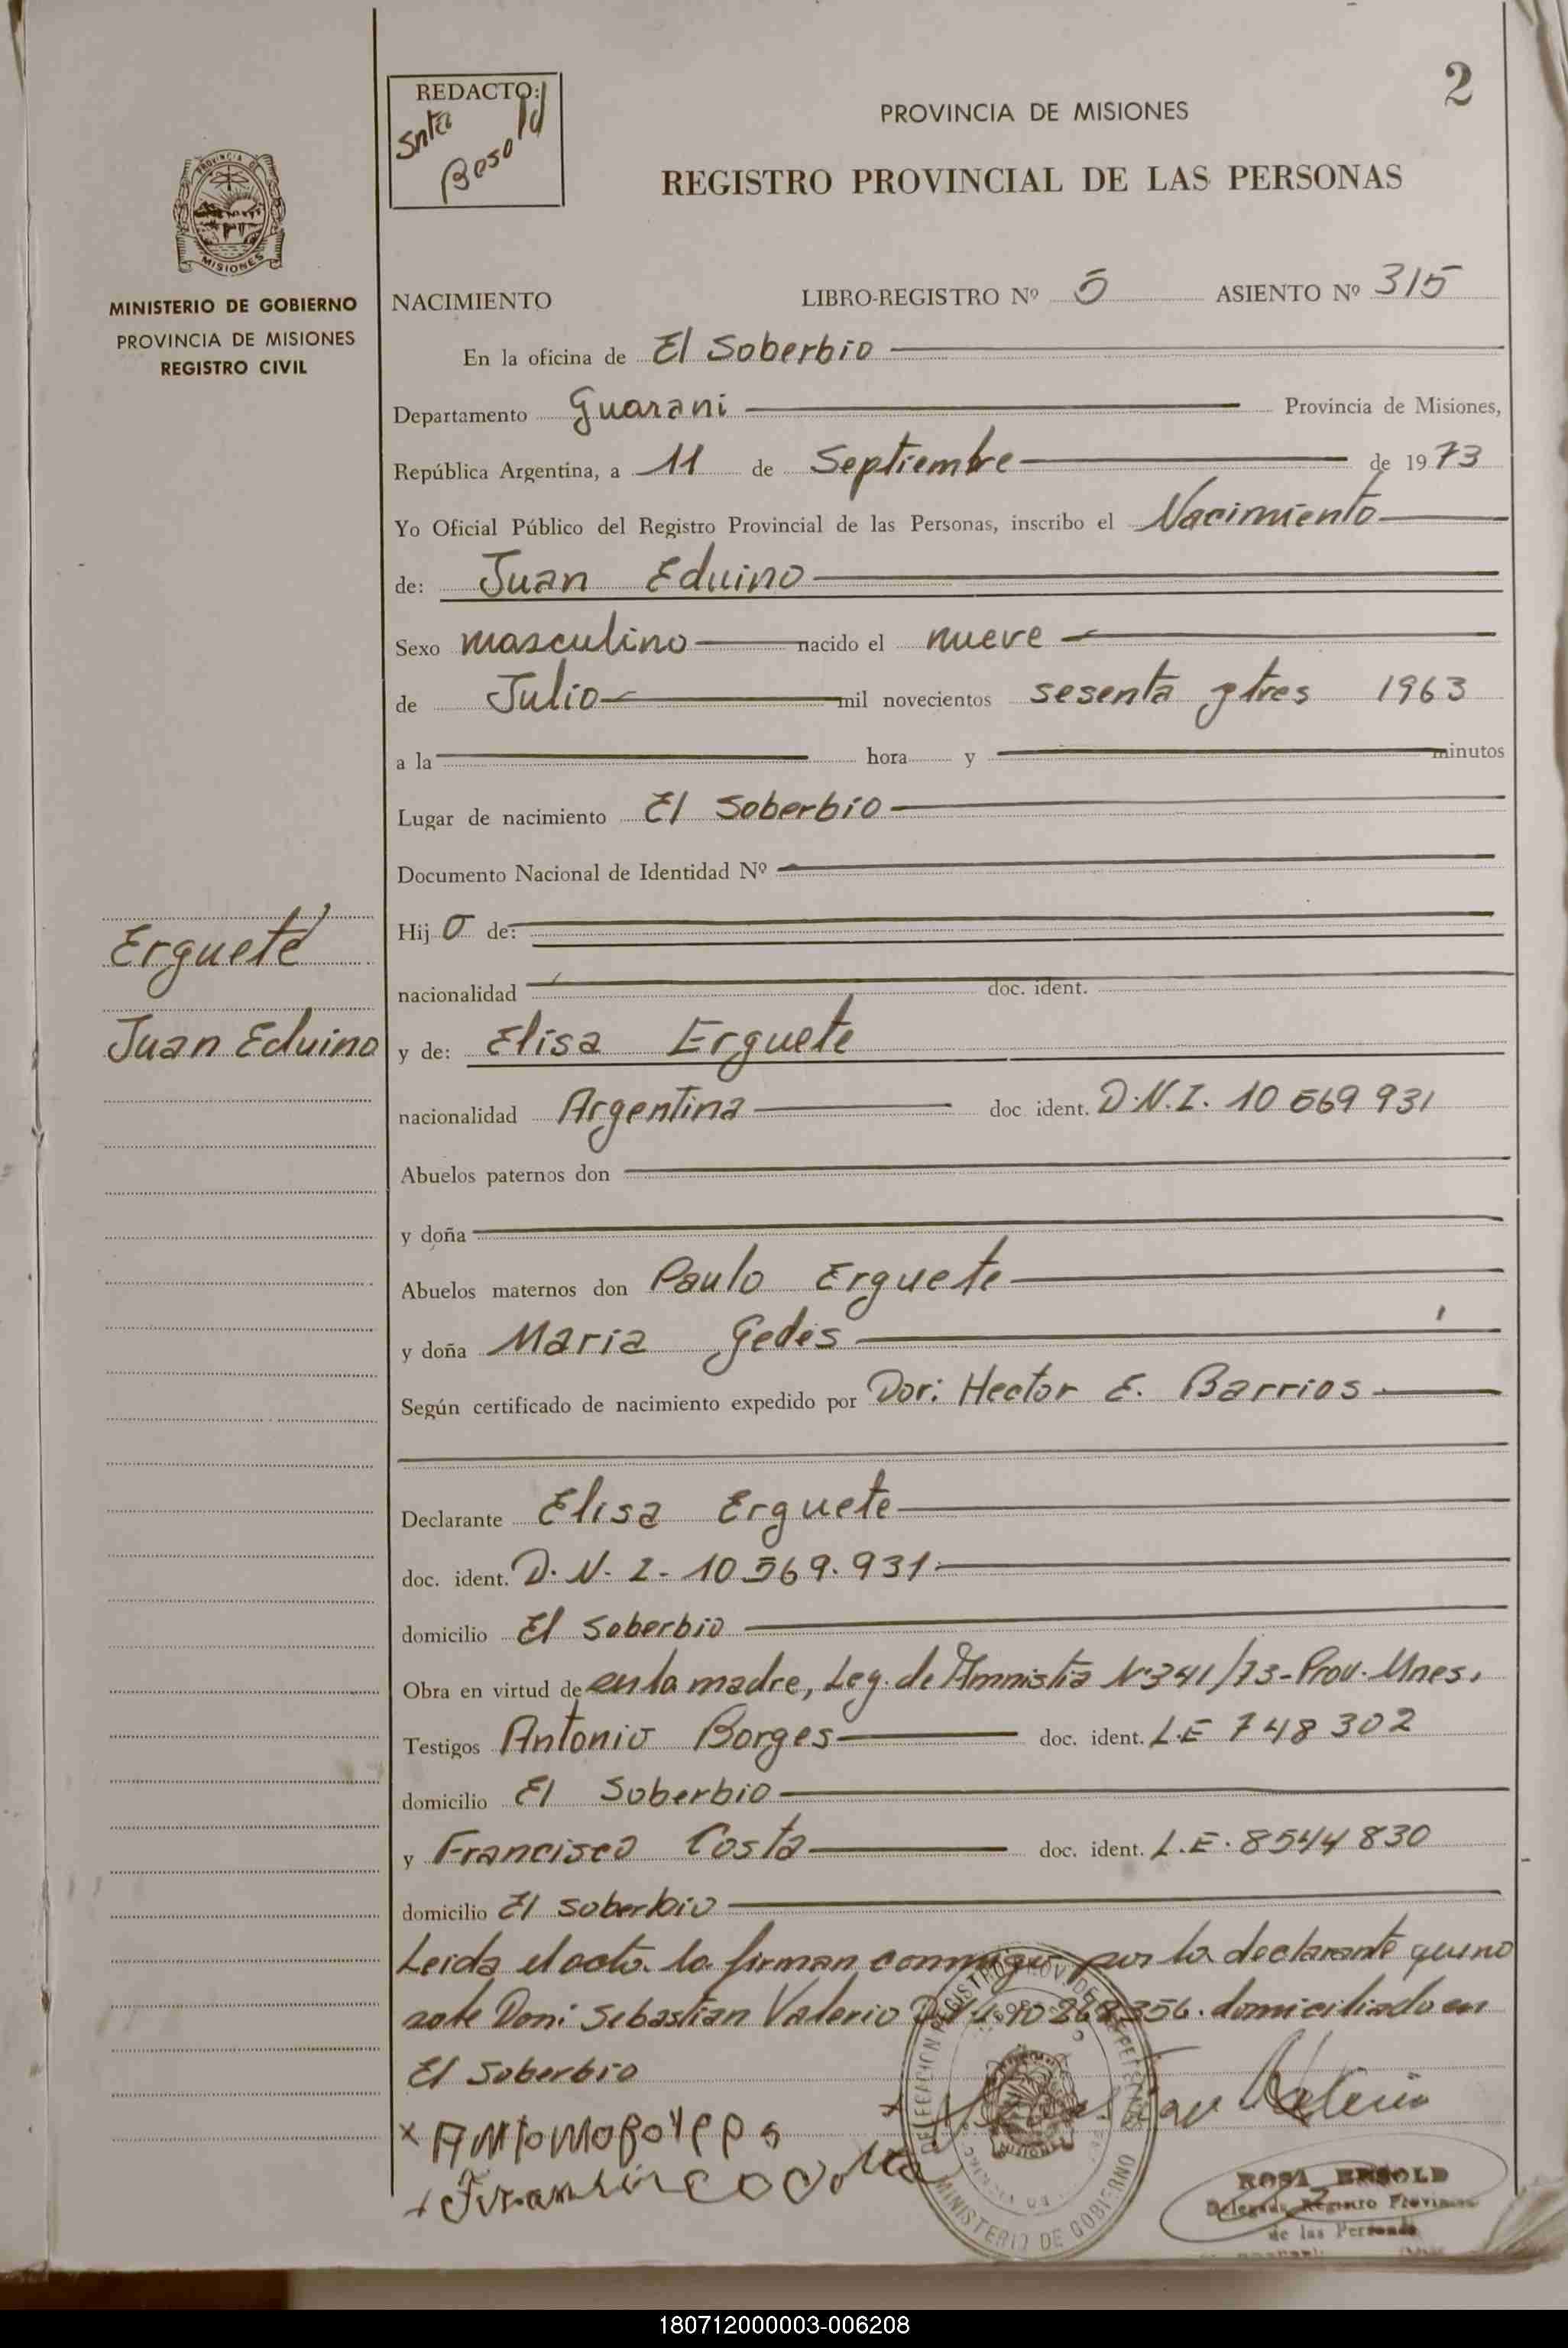 2
REDACTO:
Snta
Besold
PROVINCIA DE MISIONES
REGISTRO PROVINCIAL DE LAS PERSONAS
PROVINCIA DE
MISIONES
MINISTERIO DE GOBIERNO
PROVINCIA DE MISIONES
REGISTRO CIVIL
NACIMIENTO LIBRO-REGISTRO Nº 5 ASIENTO Nº 315
En la oficina de El Soberbio
Departamento Guarani Provincia de Misiones,
República Argentina, a 11 de Septiembre de 1973
Yo Oficial Público del Registro Provincial de las Personas, inscribo el Nacimiento
de: Juan Eduino
Sexo masculino nacido el nueve
de Julio mil novecientos sesenta y tres 1963
a la hora y minutos
Lugar de nacimiento El Soberbio
Documento Nacional de Identidad Nº
Hijo de:
nacionalidad doc. ident.
y de: Elisa Erguete
nacionalidad Argentina doc ident. D.N.I. 10 569 931
Abuelos paternos don
y doña
Abuelos maternos don Paulo Erguete
y doña Maria Gedes
Según certificado de nacimiento expedido por Dor: Hector E. Barrios
Declarante Elisa Erguete
doc. ident. D.N.I. 10 569.931
domicilio El Soberbio
Obra en virtud de en la madre, Ley. de Amnistia Nº341/73-Prov. Mnes.
Testigos Antonio Borges doc. ident. L.E 748302
domicilio El Soberbio
y Francisco Costa doc. ident. L.E. 8544830
domicilio El Soberbio
Leida el acta la firman conmigo por la declarante que no
sabe Don: Sebastian Valerio domiciliado en
El Soberbio
Erguete
Juan Eduino
MINISTERIO DE GOBIERNO
MISIONES
ROSA BESOLD
Delegada Registro Provincial
de las Personas
180712000003-006208